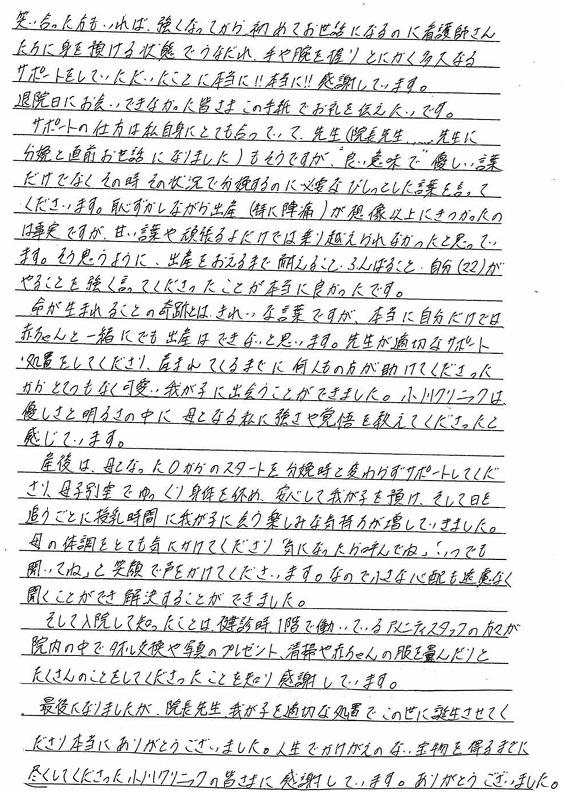 笑い合った方もいれば、強くなってから初めてお世話になるのに看護師さん
たちに身を預ける状態でうなだれ、手や腕を握りとにかく多大なる
サポートをしていただいたことに本当に!!本当に!!感謝しています。
退院日にお会いできなかった皆さまこの手紙でお礼を伝えたいです。
サポートの仕方は私自身にとても合っていて、先生(院長先生、先生に
分娩と直前お世話になりました)もそうですが、"良い意味で"優しい言葉
だけでなくその時その状況で分娩するのに必要なびしっとした言葉を言って
くださいます。恥ずかしながら出産(特に陣痛)が想像以上にきつかったの
は事実ですが、甘い言葉や頑張るよだけでは乗り越えられなかったと思ってい
ます。そう思うように、出産をおえるまで耐えること、ふんばること、自分(22)が
やることを強く言ってくださったことが本当に良かったです。
命が生まれることの奇跡とは、きれいな言葉ですが、本当に自分だけでは
赤ちゃんと一緒にでも出産はできないと思います。先生が適切なサポート
・処置をしてくださり、産まれてくるまでに何人もの方が助けてくださった
からとてつもなく可愛い我が子に出会うことができました。小川クリニックは
優しさと明るさの中に母となる私に強さや覚悟を教えてくださったと
感じています。
産後は、母となった0からのスタートを分娩時と変わらずサポートしてくだ
さり、母子別室でゆっくり身体を休め、安心して我が子を預け、そして日を
追うごとに授乳時間に我が子に会う楽しみな気持ちが増していきました。
母の体調をとても気にかけてくださり「気になったら呼んでね」「いつでも
聞いてね」と笑顔で声をかけてくださいます。なので小さな心配も遠慮なく
聞くことができ解決することができました。
そして入院して知ったことは、健診時、1階で働いているアメニティスタッフの方々が
院内の中でタオル交換や写真のプレゼント、清掃や赤ちゃんの服を畳んだりと
たくさんのことをしてくださったことを知り感謝しています。
最後になりましたが、院長先生、我が子を適切な処置でこの世に誕生させてく
ださり本当にありがとうございました。人生でかけがえのない宝物を得るまでに
尽くしてくださった小川クリニックの皆さまに感謝しています。ありがとうございました。